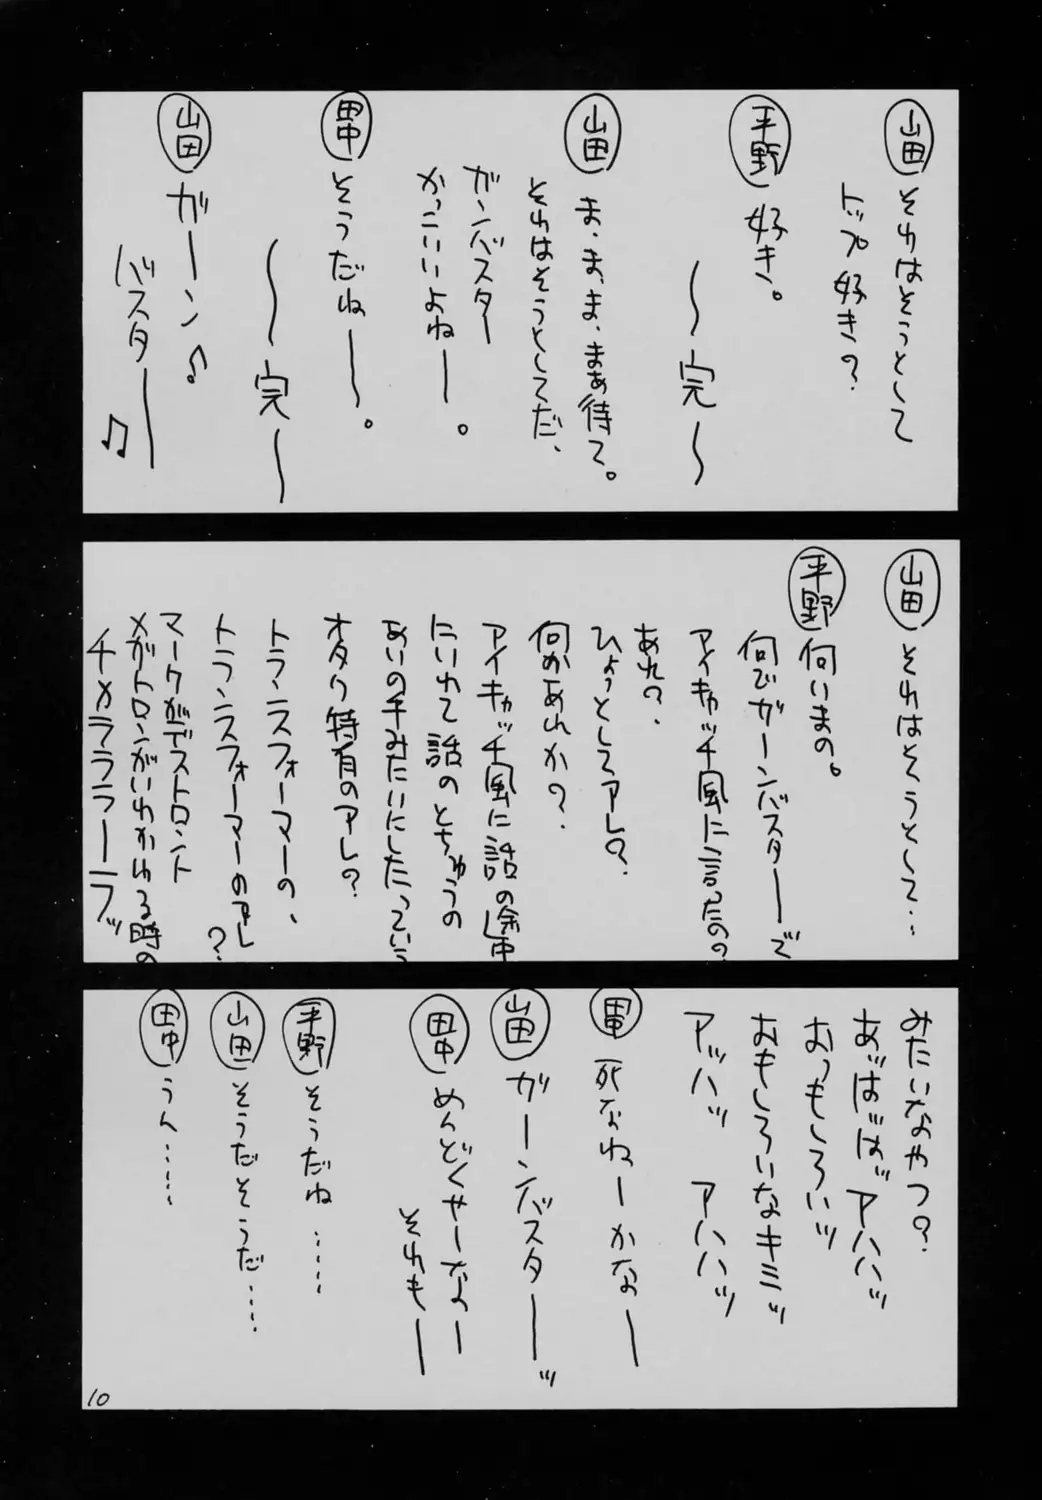 山田 それはそうとして
トップ好きの?
平野 好き。
～完～
山田 ま、ま、ま、まぁ待て。
それはそうとしてだ、
ガンバスター
かっこいいよねー。
田中 そうだねー～。
～完～
山田 ガーン♪
バスター♫
山田 それはそうとして‥
平野 何いまの。
何でガーンバスターーで
アイキャッチ風に言ったの?
あれ?、
ひょっとしてアレ?
何かあれか?
アイキャッチ風に話の途中
にいれて話のとちゅうの
あいの手みたいにしたっていう
オタク特有のアレ?
トランスフォーマーの、
トランスフォーマーのアレ?
マークがデストロント
メガトロンがいれかわる時の
チャラララーラッ
みたいなやつ?
あッはッはッアハハッ
おっもしろいッ
おもしろいなキミッ
アッハッ アハハッ
田中 死なねーかなー
山田 ガーンバスターーッ
田中 めんどくせーなー
それもー
平野 そうだね‥‥‥
山田 そうだそうだ‥‥‥
田中 うん‥‥‥
10